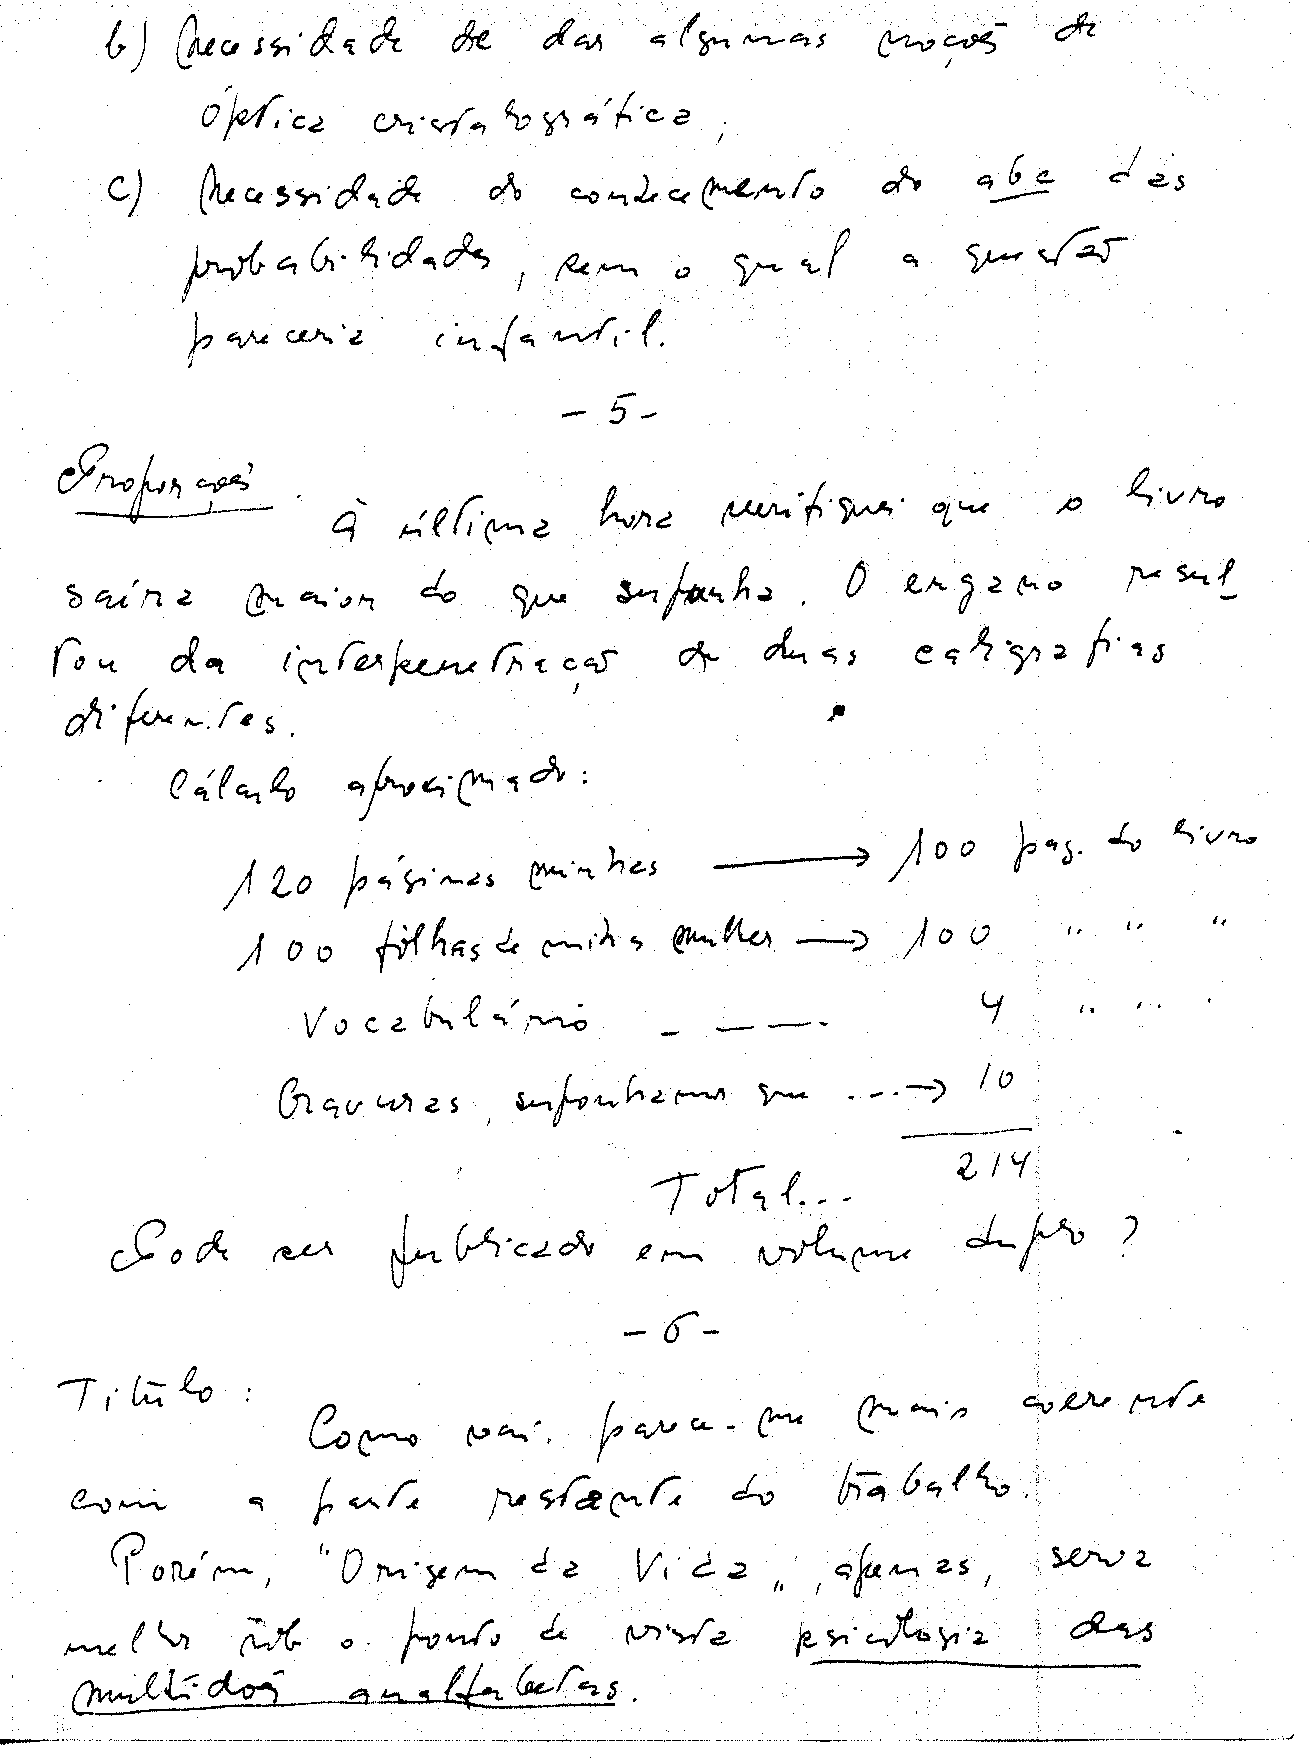 b) Necessidade de dar algumas noções de
óptica cristalográfica;
c) Necessidade do conhecimento do abc das
probabilidades, sem o qual a questão
pareceria infantil.
- 5 -
Proporções. À última hora verifiquei que o livro
saíra maior do que supunha. O engano resul-
tou da interpenetração de duas caligrafias
diferentes.
Cálculo aproximado:
120 páginas minhas → 100 pag. do livro
100 fôlhas de minha mulher → 100 " " "
Vocabulário - - - - 4 " " "
Gravuras, suponhamos que ...→ 10
Total... 214
Pode ser publicado em volume duplo?
- 6 -
Titulo: Como vai, parece-me mais coerente
com a parte restante do trabalho.
Porém, "Origem da Vida", apenas, serva
melhor sôb o ponto de vista psicologia das
multidões analfabetas.